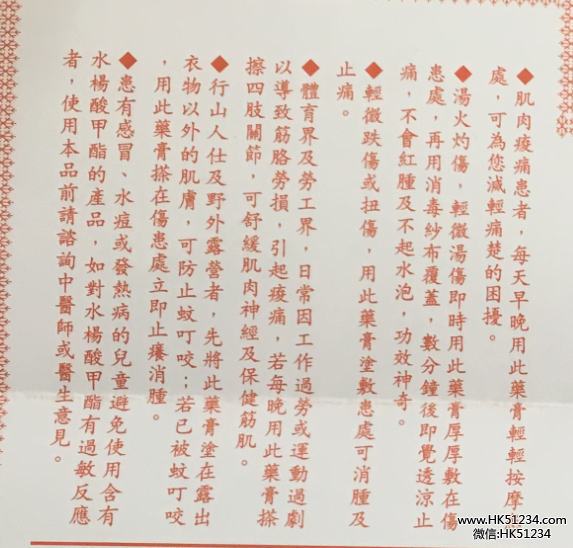 ◆肌肉痠痛患者，每天早晚用此藥膏輕輕按摩
處，可為您減輕痛楚的困擾。
◆湯火灼傷，輕微湯傷即時用此藥膏厚厚敷在傷
患處，再用消毒紗布覆蓋，數分鐘後即覺透涼止
痛，不會紅腫及不起水泡，功效神奇。
◆輕微跌傷或扭傷，用此藥膏塗敷患處可消腫及
止痛。
◆體育界及勞工界，日常因工作過勞或運動過劇
以導致筋胳勞損，引起痠痛，若每晚用此藥膏搽
擦四肢關節，可舒緩肌肉神經及保健筋肌。
◆行山人仕及野外露營者，先將此藥膏塗在露出
衣物以外的肌膚，可防止蚊叮咬；若已被蚊叮咬
，用此藥膏搽在傷患處立即止癢消腫。
◆患有感冒、水痘或發熱病的兒童避免使用含有
水楊酸甲酯的產品，如對水楊酸甲酯有過敏反應
者，使用本品前請諮詢中醫師或醫生意見。
www.HK51234.com
微信:HK51234